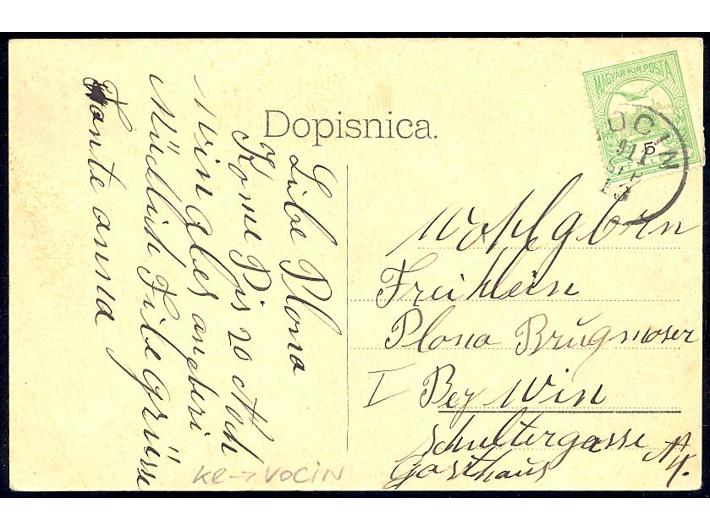 Dopisnica.
MAGYAR KIR. POSTA
5
UCIN
911
13
Libe Plona
Kome Pis 20 Noch
Win ales anderi
Mündlich File grüsse
Tante anna
Wohlgborn
Freihlein
Plona Brugmoser
I Bez Win
Schultergasse
Gasthaus
KE→VOCIN